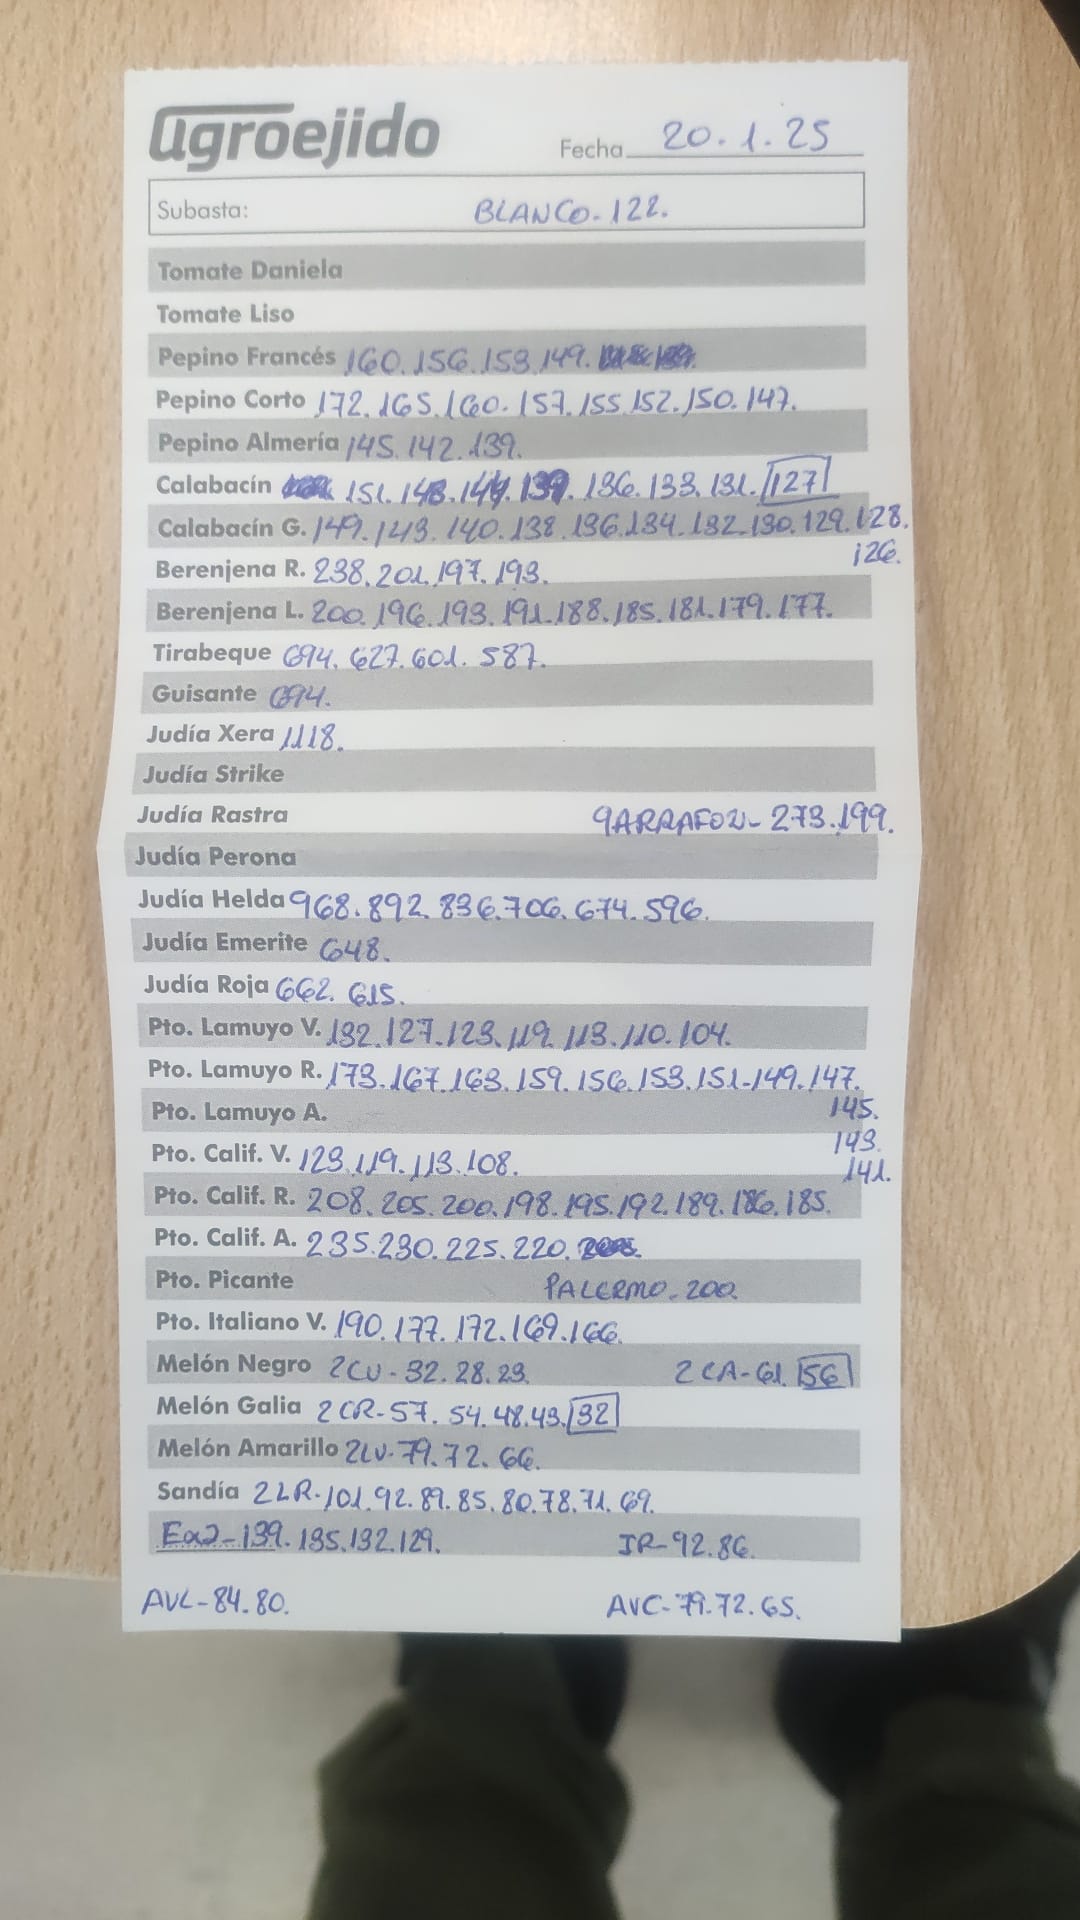 agroejido
Fecha 20.1.25
Subasta: BLANCO-122.
Tomate Daniela
Tomate Liso
Pepino Francés 160.156.153.149.
Pepino Corto 172.165.160.157.155.152.150.147.
Pepino Almería 145.142.139.
Calabacín 151.148.144.139.136.133.131.127
Calabacín G. 149.143.140.138.136.134.132.130.129.128.
126.
Berenjena R. 238.201.197.193.
Berenjena L. 200.196.193.191.188.185.181.179.177.
Tirabeque 694.627.601.587.
Guisante 694.
Judía Xera 1118.
Judía Strike
Judía Rastra GARRAFON-273.199.
Judía Perona
Judía Helda 968.892.836.706.674.596.
Judía Emerite 648.
Judía Roja 662.615.
Pto. Lamuyo V. 132.127.123.119.113.110.104.
Pto. Lamuyo R. 173.167.163.159.156.153.151-149.147.
Pto. Lamuyo A. 145.
143.
Pto. Calif. V. 123.119.113.108.
141.
Pto. Calif. R. 208.205.200.198.195.192.189.186.185.
Pto. Calif. A. 235.230.225.220.
Pto. Picante PALERMO-200.
Pto. Italiano V. 190.177.172.169.166.
Melón Negro 2CU-32.28.23. 2CA-61.56
Melón Galia 2CR-57.54.48.43.32
Melón Amarillo 2LV-79.72.66.
Sandía 2LR-101.92.89.85.80.78.71.69.
Ex2-139.135.132.129. IR-92.86.
AVL-84.80. AVC-79.72.65.